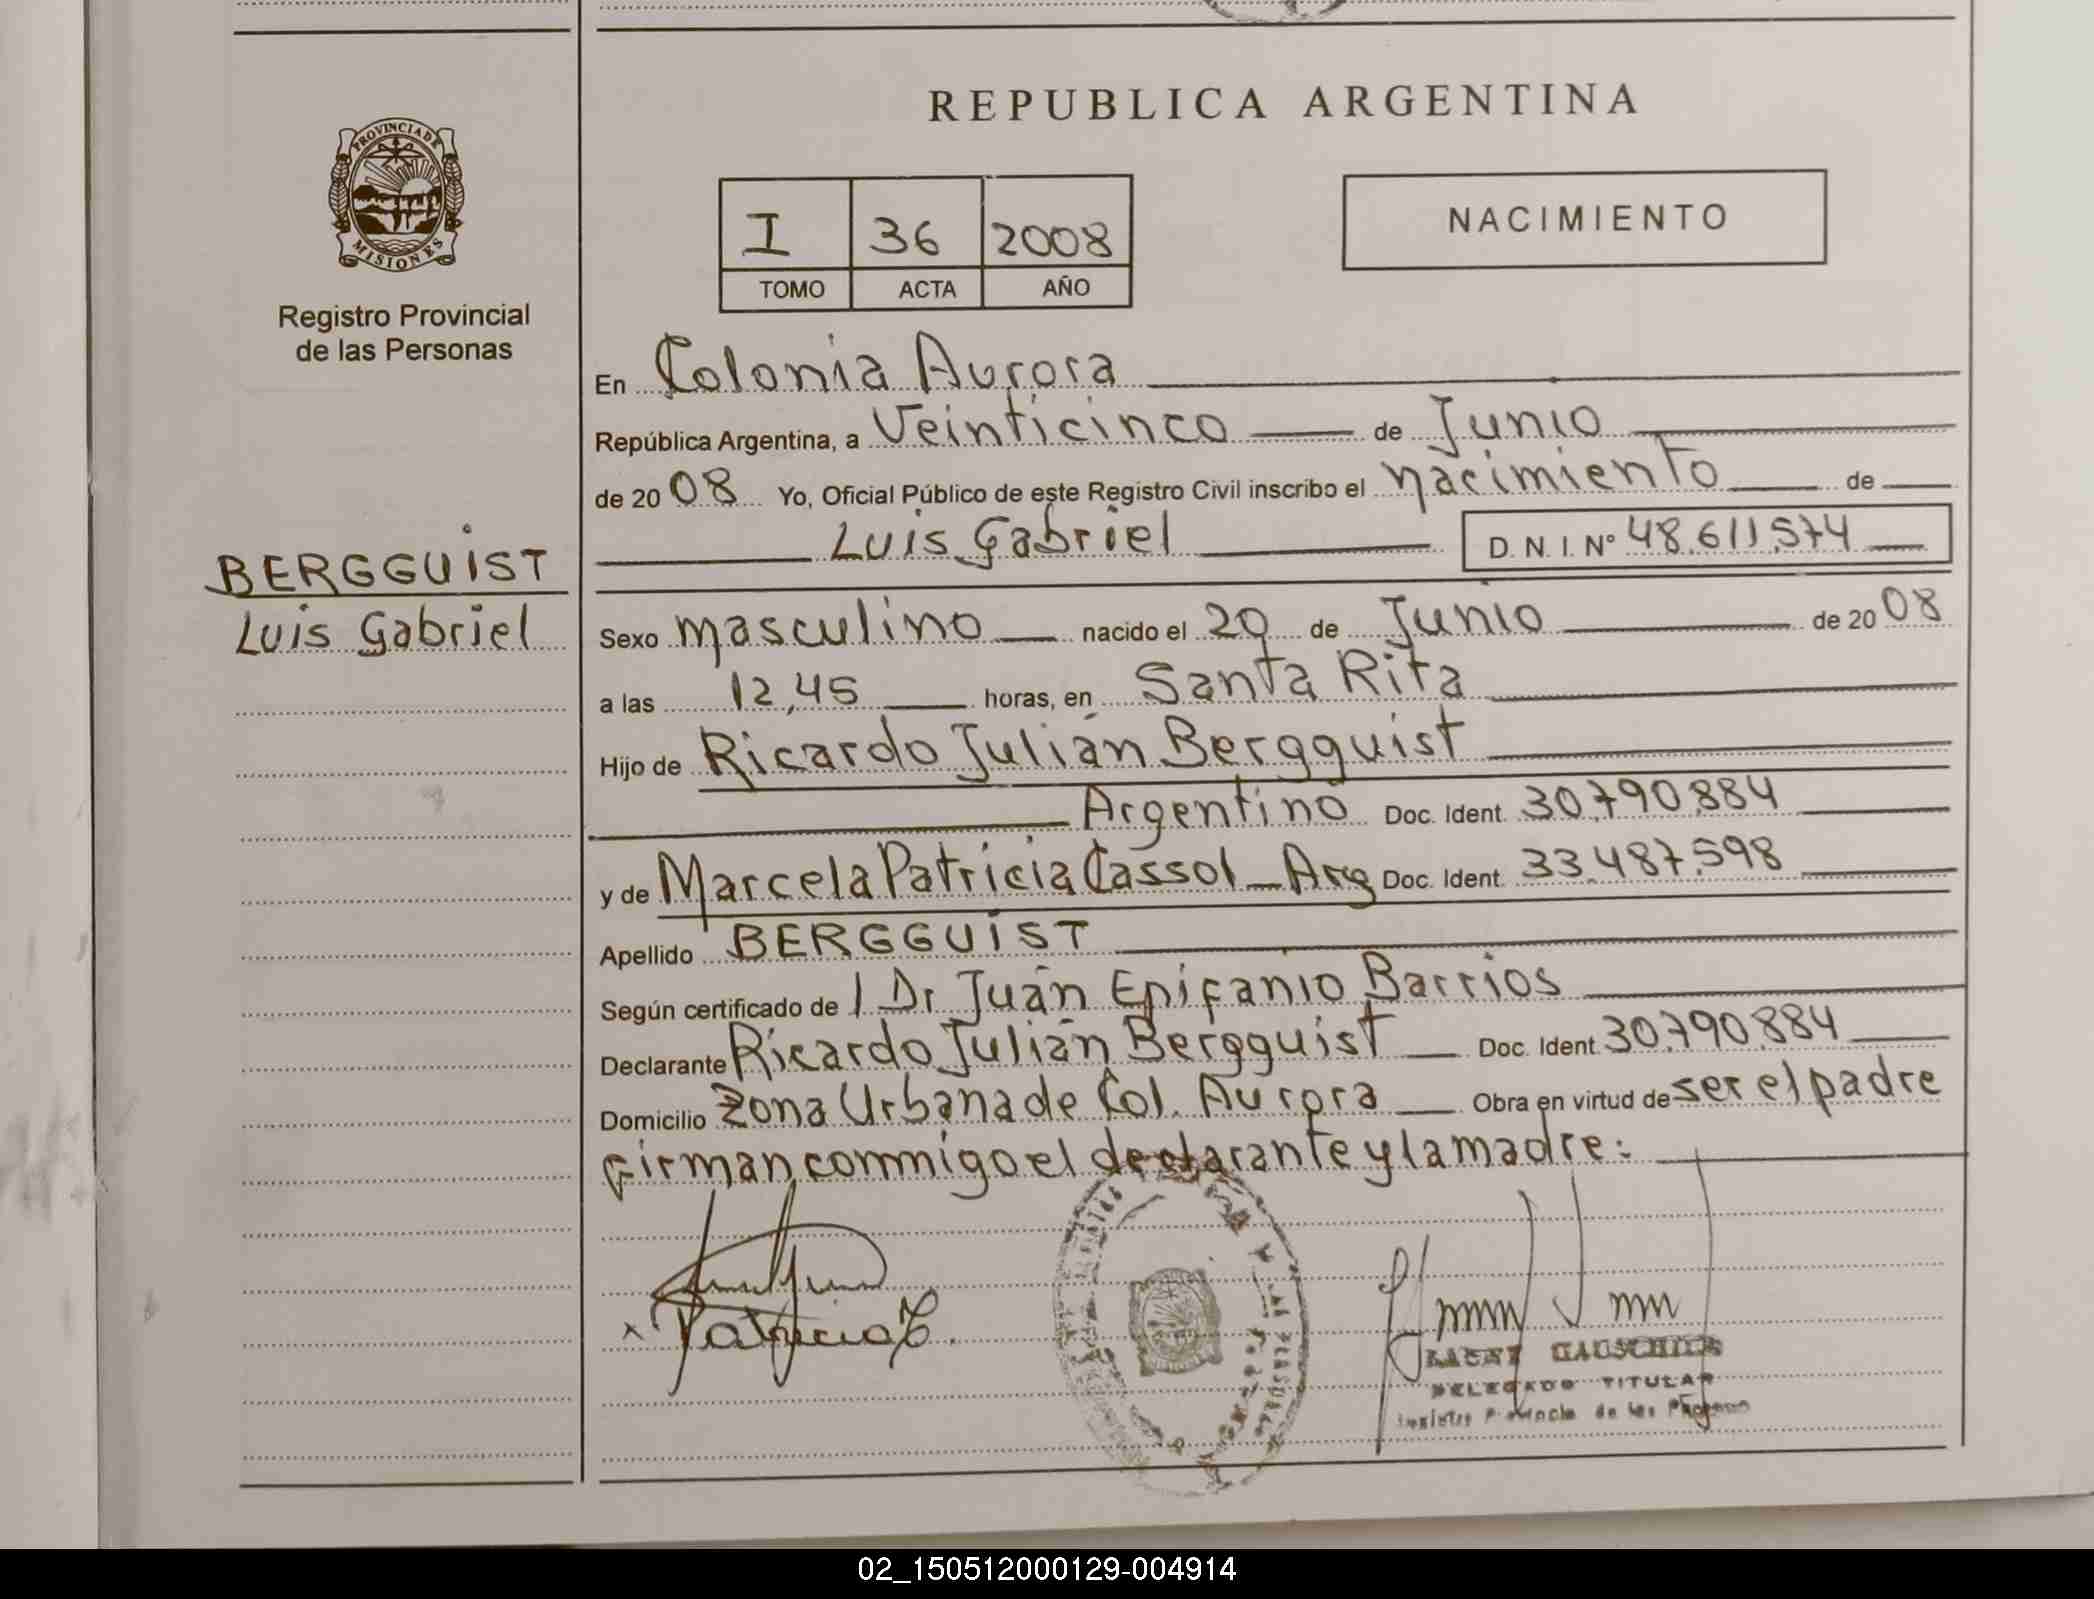 REPUBLICA ARGENTINA
PROVINCIA DE
MISIONES
Registro Provincial
de las Personas
I 36 2008
TOMO ACTA AÑO
NACIMIENTO
BERGGUIST
Luis Gabriel
En Colonia Aurora
República Argentina, a Veinticinco de Junio
de 2008 Yo, Oficial Público de este Registro Civil inscribo el nacimiento de
Luis Gabriel D. N. I. Nº 48.611.574
Sexo masculino nacido el 20 de Junio de 2008
a las 12,45 horas, en Santa Rita
Hijo de Ricardo Julián Bergguist
Argentino Doc. Ident. 30.790.884
y de Marcela Patricia Cassol - Arg Doc. Ident. 33.487.598
Apellido BERGGUIST
Según certificado de / Dr Juan Epifanio Barrios
Declarante Ricardo Julián Bergguist Doc. Ident. 30.790.884
Domicilio Zona Urbana de Col. Aurora Obra en virtud de ser el padre
Firman conmigo el declarante y la madre:
x Patricia C.
DELEGADO TITULAR
02_150512000129-004914